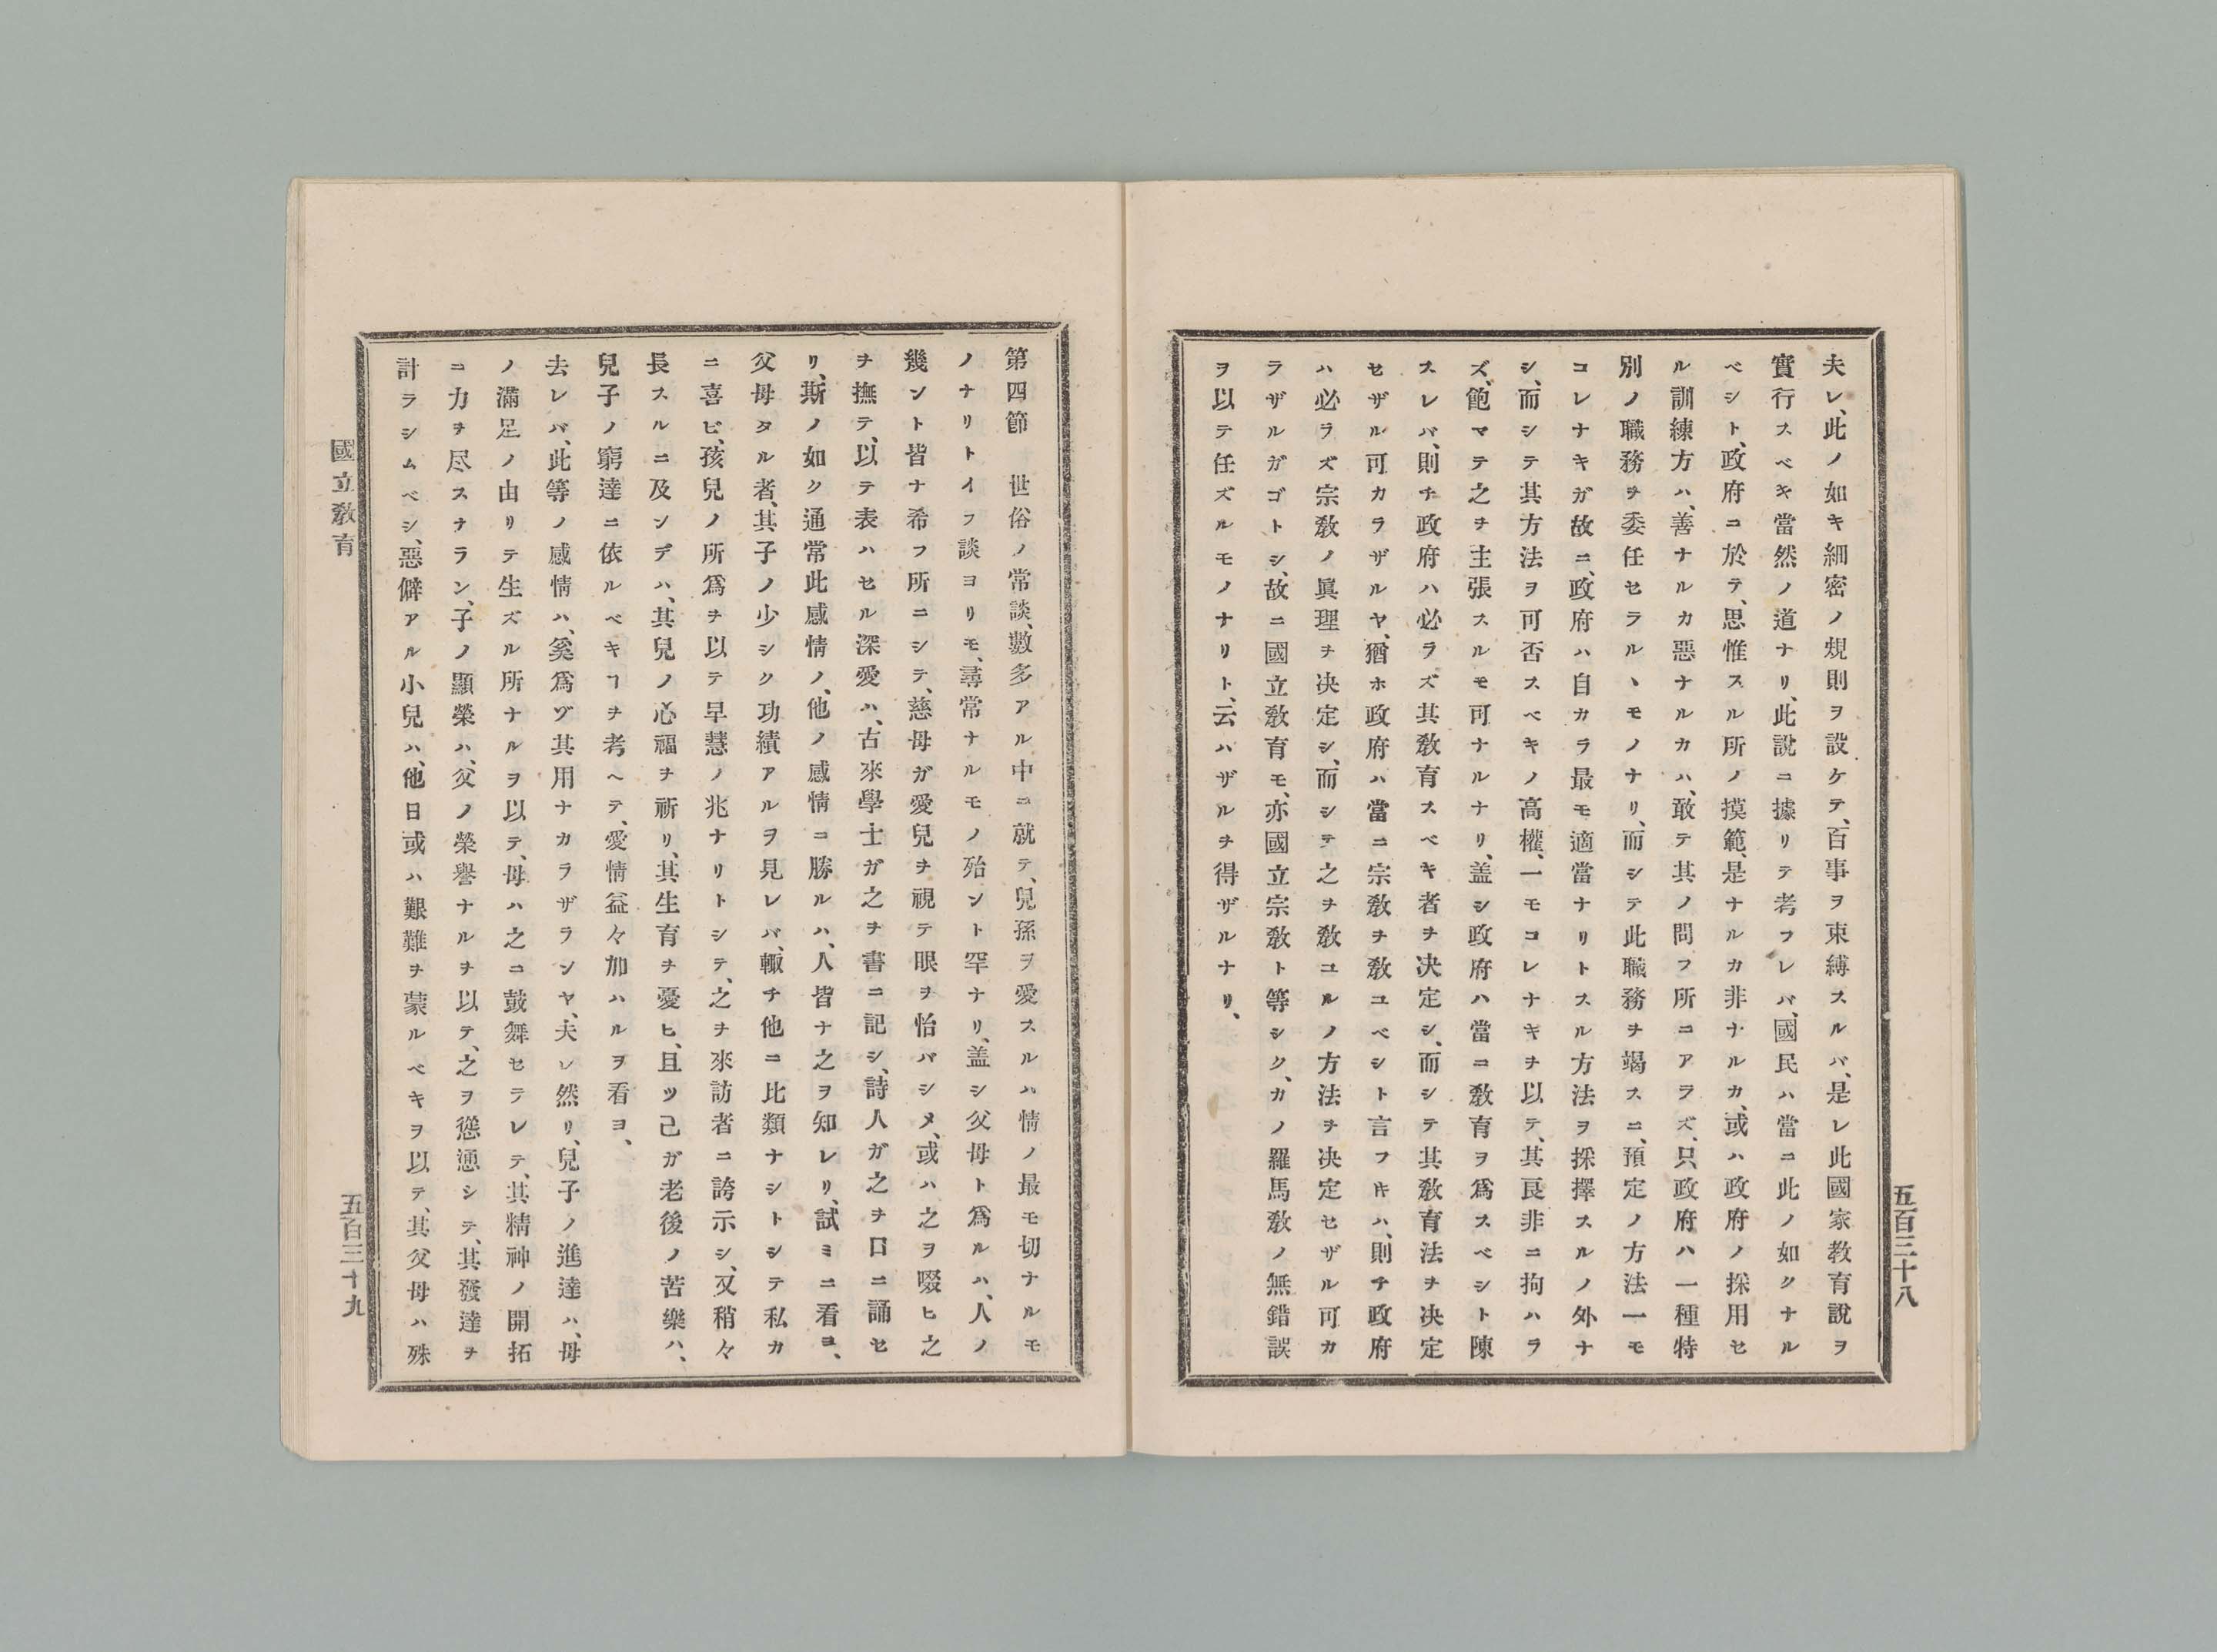 夫レ、此ノ如キ細密ノ規則ヲ設ケテ、百事ヲ束縛スルバ、是レ此國家教育說ヲ
實行スベキ當然ノ道ナリ、此說ニ據リテ考フレバ、國民ハ當ニ此ノ如クナル
ベシト、政府ニ於テ、思惟スル所ノ摸範、是ナルカ非ナルカ、或ハ政府ノ採用セ
ル訓練方ハ、善ナルカ惡ナルカハ、敢テ其ノ問フ所ニアラズ、只政府ハ一種特
別ノ職務ヲ委任セラルヽモノナリ、而シテ此職務ヲ竭スニ、預定ノ方法一モ
コレナキガ故ニ、政府ハ自カラ最モ適當ナリトスル方法ヲ採擇スルノ外ナ
シ、而シテ其方法ヲ可否スベキノ高權、一モコレナキヲ以テ、其良非ニ拘ハラ
ズ、飽マテ之ヲ主張スルモ可ナルナリ、盖シ政府ハ當ニ教育ヲ爲スベシト陳
スレバ、則チ政府ハ必ラズ其教育スベキ者ヲ决定シ、而シテ其教育法ヲ决定
セザル可カラザルヤ、猶ホ政府ハ當ニ宗教ヲ教ユベシト言フキハ、則チ政府
ハ必ラズ宗教ノ眞理ヲ决定シ、而シテ之ヲ教ユルノ方法ヲ决定セザル可カ
ラザルガゴトシ、故ニ國立教育モ、亦國立宗教ト等シク、カノ羅馬教ノ無錯誤
ヲ以テ任ズルモノナリト、云ハザルヲ得ザルナリ、
五百三十八
第四節　世俗ノ常談、數多アル中ニ就テ、兒孫ヲ愛スルハ情ノ最モ切ナルモ
ノナリトイフ談ヨリモ、尋常ナルモノ殆ント罕ナリ、盖シ父母ト爲ルハ、人ノ
幾ント皆ナ希フ所ニシテ、慈母ガ愛兒ヲ視テ眼ヲ怡バシメ、或ハ之ヲ啜ヒ之
ヲ撫テ、以テ表ハセル深愛ハ、古來學士ガ之ヲ書ニ記シ、詩人ガ之ヲ口ニ誦セ
リ、斯ノ如ク通常此感情ノ、他ノ感情ニ勝ルハ、人皆ナ之ヲ知レリ、試ミニ看ヨ、
父母タル者、其子ノ少シク功績アルヲ見レバ、輙チ他ニ比類ナシトシテ私カ
ニ喜ビ、孩兒ノ所爲ヲ以テ早慧ノ兆ナリトシテ、之ヲ來訪者ニ誇示シ、又稍々
長スルニ及ンデハ、其兒ノ心福ヲ祈リ、其生育ヲ憂ヒ、且ツ己ガ老後ノ苦樂ハ、
兒子ノ窮達ニ依ルベキヿヲ考ヘテ、愛情益々加ハルヲ看ヨ、
去レバ、此等ノ感情ハ、奚爲ゾ其用ナカラザランヤ、夫レ然リ、兒子ノ進達ハ、母
ノ滿足ノ由リテ生ズル所ナルヲ以テ、母ハ之ニ鼓舞セラレテ、其精神ノ開拓
ニ力ヲ尽スナラン、子ノ顯榮ハ、父ノ榮譽ナルヲ以テ、之ヲ慫慂シテ、其發達ヲ
計ラシムベシ、惡僻アル小兒ハ、他日或ハ艱難ヲ蒙ルベキヲ以テ、其父母ハ殊
國立教育
五百三十九